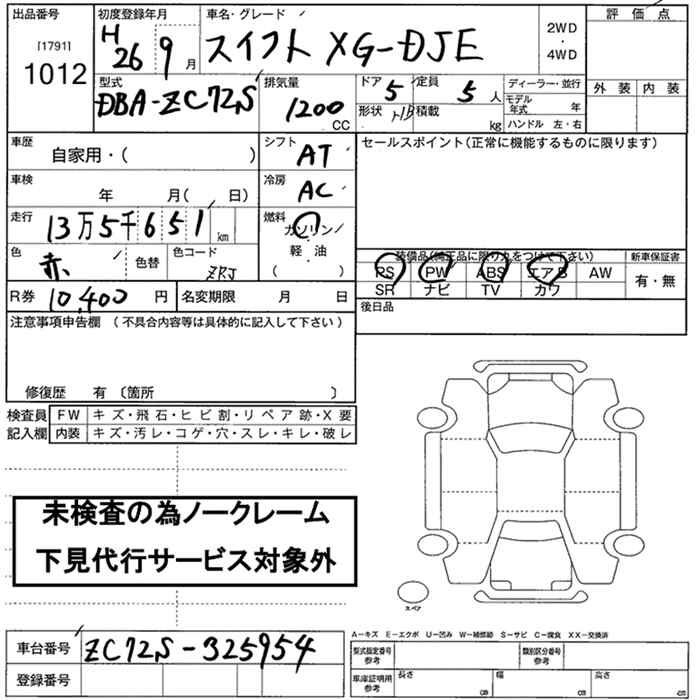 出品番号 初度登録年月 車名・グレード 評価点
[1791] H 26 9月 スイフト XG-DJE 2WD・4WD
1012
外装 内装
型式 排気量 ドア 5 定員 5人 ディーラー・並行
DBA-ZC72S 1200 CC 形状 積載 kg モデル年式 年
ハンドル 左・右
車歴 自家用・( ) シフト AT セールスポイント(正常に機能するものに限ります)
車検 年 月( 日) 冷房 AC
走行 13万5千651km 燃料 ガソリン
軽・油
( )
色 赤 色替 色コード ZRJ 装備品(純正品に限り丸をつけて下さい) 新車保証書
PS PW ABS エアB AW 有・無
SR ナビ TV カワ
R券 10,400円 名変期限 月 日 後日品
注意事項申告欄 (不具合内容等は具体的に記入して下さい)
修復歴 有 〔箇所 〕
検査員 FW キズ・飛石・ヒビ割・リペア跡・X要
記入欄 内装 キズ・汚レ・コゲ・穴・スレ・キレ・破レ
未検査の為ノークレーム
下見代行サービス対象外
スペア
A-キズ E-エクボ U-凹み W-補修跡 S-サビ C-腐食 XX-交換済
車台番号 ZC72S-325954 型式指定番号 参考 類別区分番号 参考
登録番号 車庫証明用 参考 長さ cm 幅 cm 高さ cm